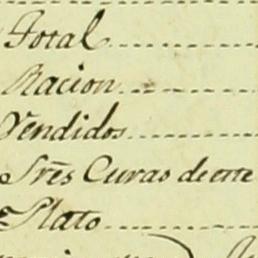 Total
Racion
Vendidos
Srẽs Curas de este
Plato